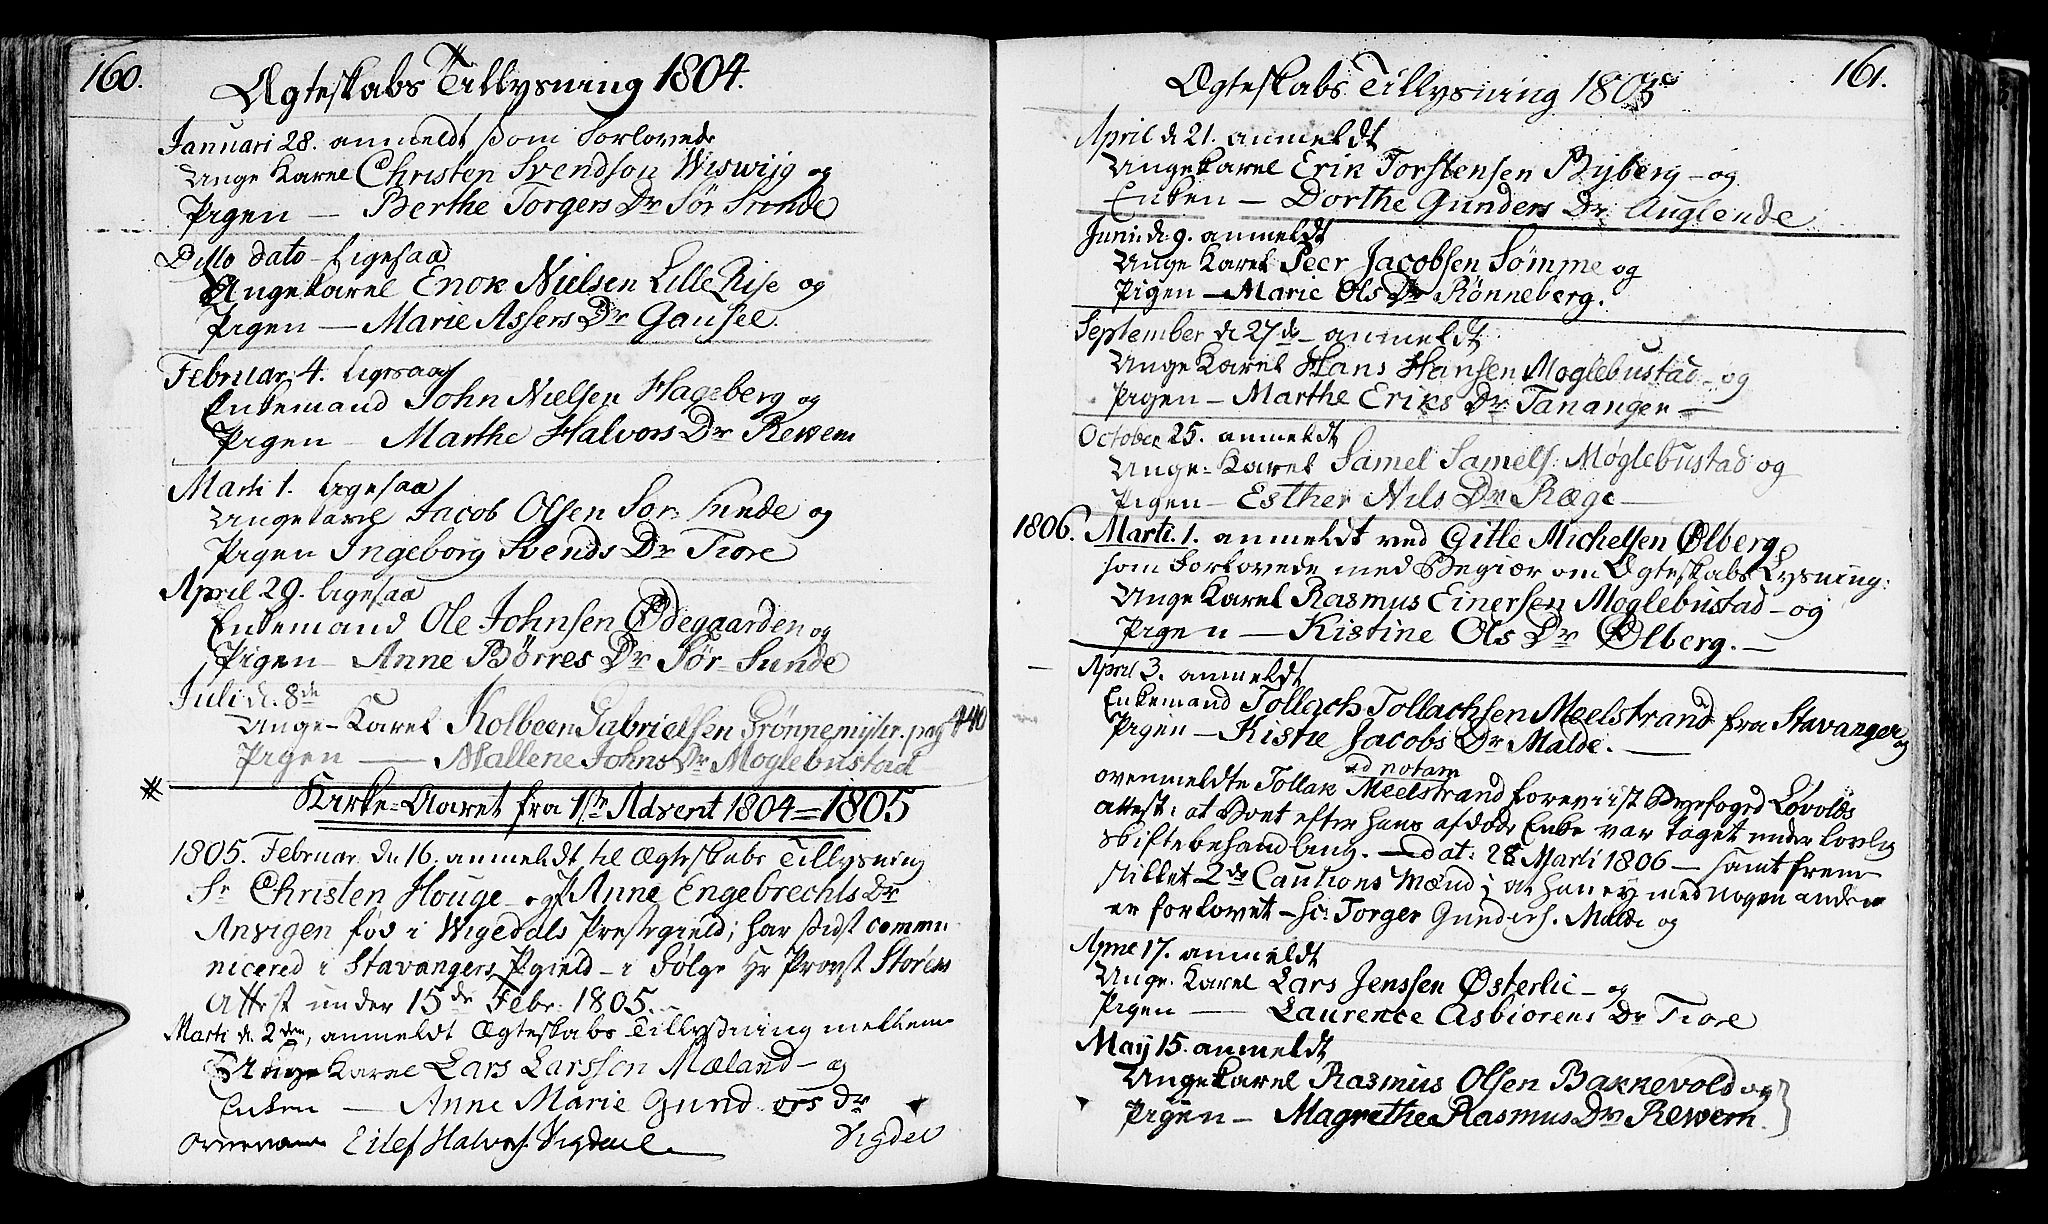 160.
Ægteskabs Tillysning 1804.
Januari 28. anmeldt som Forlovede
Unge Karl Christen Svendson Wiswijg og
Pigen — Berthe Torgers Dr Sør Sunde
Ditto dato ligesaa
Unge Karl Enok Nielsen Lille Rise og
Pigen — Marie Assers Dr Gausel.
Februar 4. ligesaa
Enkemand John Nielsen Hageberg og
Pigen — Marthe Halvors Dr Rewem
Marti 1. ligesaa
Unge Karl Jacob Olsen Sør Sunde og
Pigen Ingeborg Svends Dr Tiore
April 29. ligesaa
Enkemand Ole Johnsen Ødegaarden og
Pigen — Anne Börres Dr Sør-Sunde
Juli d. 8de
Unge-Karl Kolbeen Gabrielsen pag 140
Pigen — Mallene Johns Dr Moglebustad
Kirke-Aaret fra 1ste Advent 1804=1805
1805. Februar de 16. anmeldt til Ægteskabs Tillysning
Sr Christen Houge og P. Anne Engebrechts Dr
Anvigen fød i Wigedals Prestegield; har sidst commu-
nicered i Stavangers Pgield — i Følge Hr Provst Storms
Attest under 15de Febr. 1805.
Marti d. 2den, anmeldt Ægteskabs Tillysning mellem
Unge Karl Lars Larssen Mæland — og
Enken — Anne Marie Gund ers Dr
Eilef Halvors. Sigdel
161.
Ægteskabs Tillysning 1805
April d 21. anmeldt
Unge Karl Erik Torstensen Byberg — og
Enken — Dorthe Gunders Dr Auglende
Juni d. 9. anmeldt
Unge Karl Peer Jacobsen Sømme og
Pigen — Marie Ols Dr Rönneberg.
September d 27de — anmeldt
Unge Karl Hans Hansen Moglebustad — og
Pigen — Marthe Eriks Dr Tananger —
October 25. anmeldt
Unge-Karl Samel Samels. Møglebustad og
Pigen — Esther Nils Dr Ræge —
1806. Marti. 1. anmeldt ved Gitle Michelsen Ølberg
som Forlovede med Begiær om Ægteskabs Lysning:
Unge Karl Rasmus Einersen Moglebustad — og
Pigen — Kistine Ols Dr Ølberg. —
April 3. anmeldt
Enkemand Tollach Tollachsen Meelstrand fra Stavanger og
Pigen — Kistie Jacobs Dr Malde. —
ad notam
ovenmeldte Tollak Meelstrand foreviist Byefoged Løvolds
attest: at Boet efter hans afdøde Enke var taget under lovlig
Skiftebehandling. — dat: 28 Marti 1806 — samt frem-
stillet 2de Cautions Mænd; at han ey med nogen anden
er forlovet — sc: Torger Gunders. Malde og
April 17. anmeldt
Unge Karl Lars Jenssen Østerlie — og
Pigen — Laurence Asbiorens Dr Tiore
May 15. anmeldt
Unge Karl Rasmus Olsen Bakkevold og
Pigen — Magrethe Rasmus Dr Rewem.